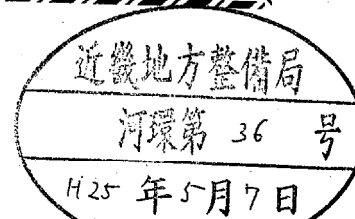 近畿地方整備局
河環第 36 号
H25 年5月7日